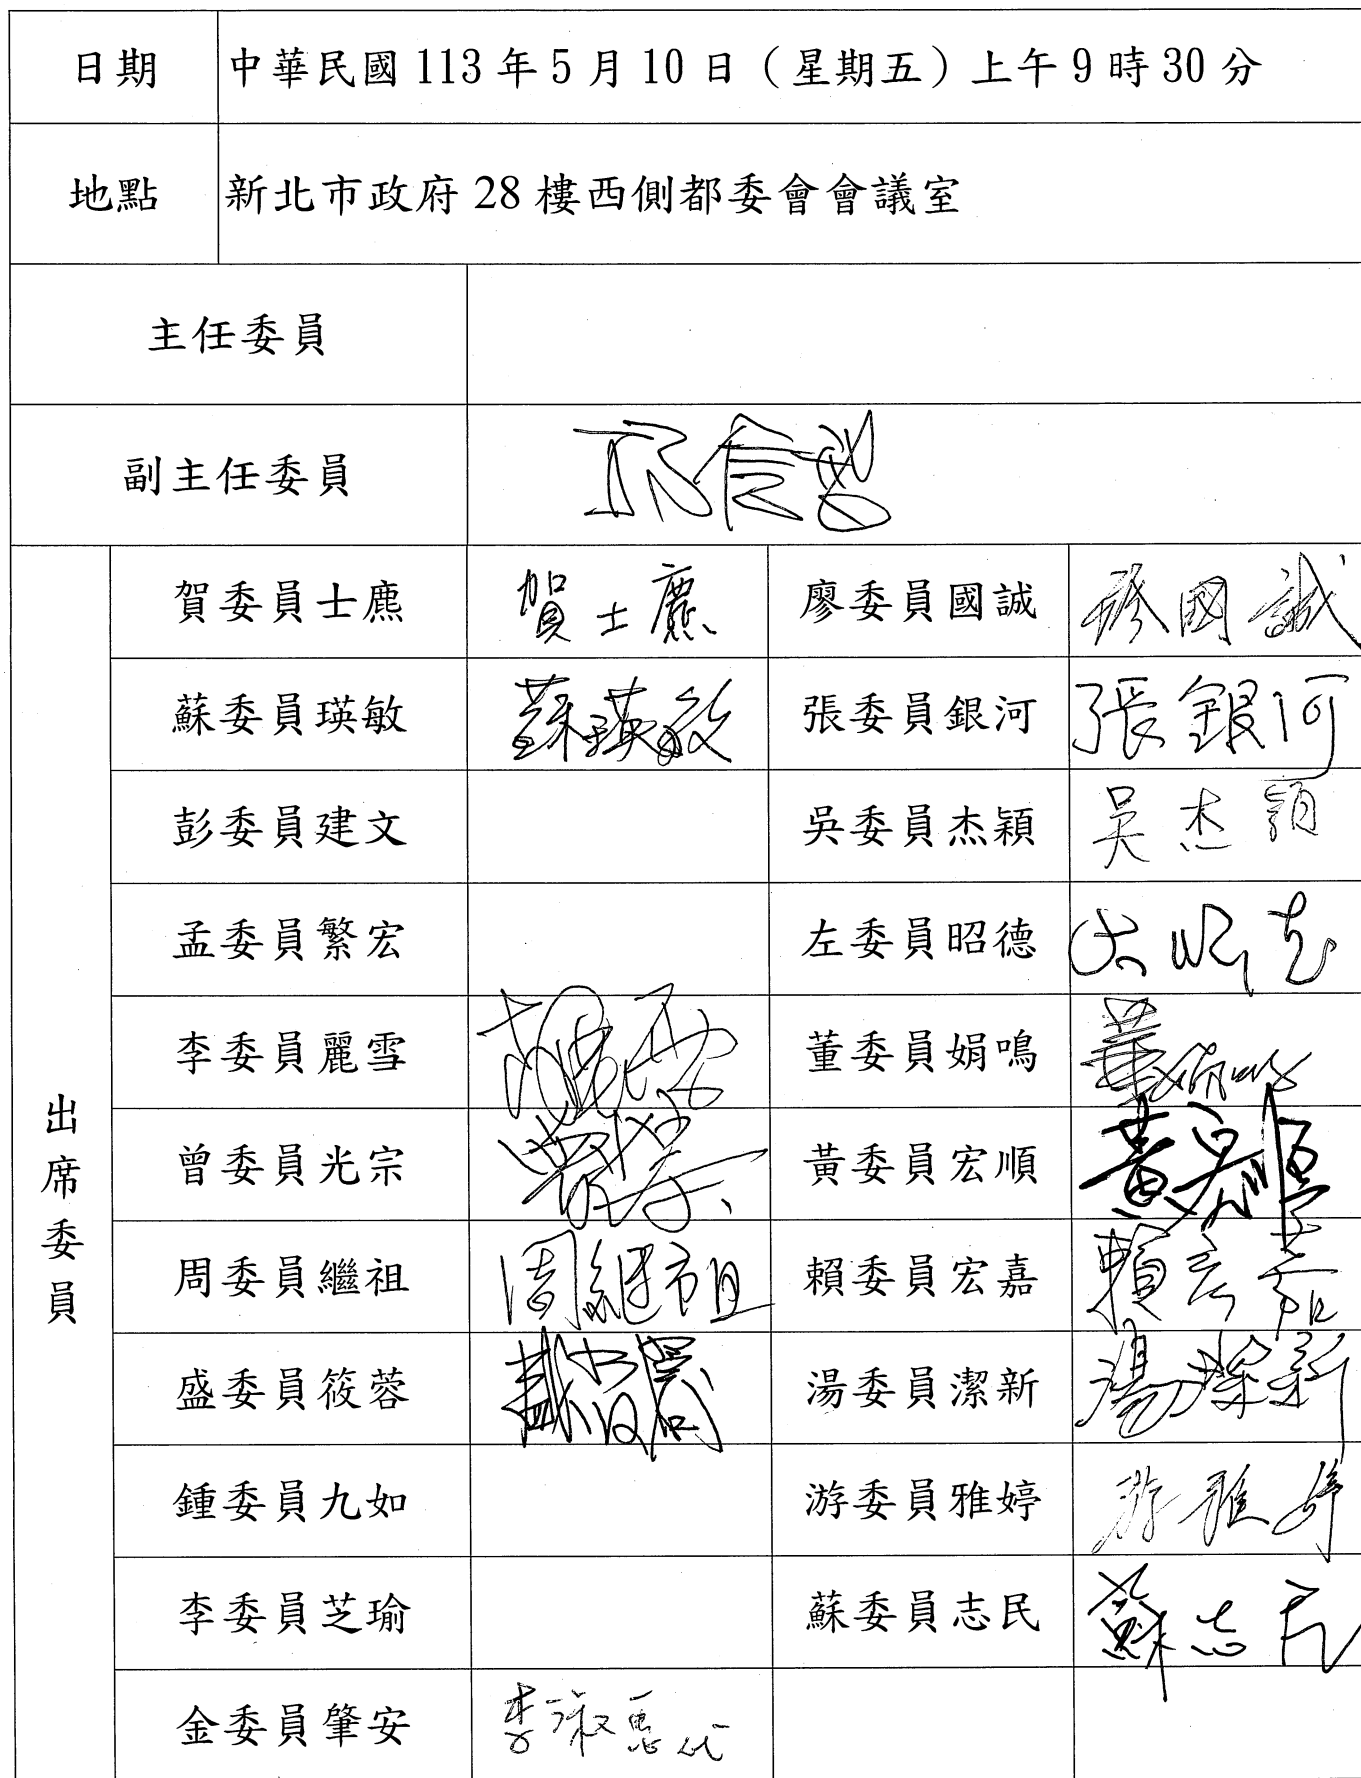 日期 中華民國 113 年 5 月 10 日（星期五）上午 9 時 30 分
地點 新北市政府 28 樓西側都委會會議室
主任委員
副主任委員
出席委員
賀委員士廌 賀士廌 廖委員國誠 廖國誠
蘇委員瑛敏 蘇瑛敏 張委員銀河 張銀河
彭委員建文 吳委員杰穎 吳杰穎
孟委員繁宏 左委員昭德
李委員麗雪 董委員娟鳴 董娟鳴
曾委員光宗 黃委員宏順 黃宏順
周委員繼祖 周繼祖 賴委員宏嘉 賴宏嘉
盛委員筱蓉 盛筱蓉 湯委員潔新 湯潔新
鍾委員九如 游委員雅婷 游雅婷
李委員芝瑜 蘇委員志民 蘇志民
金委員肇安 李淑惠代